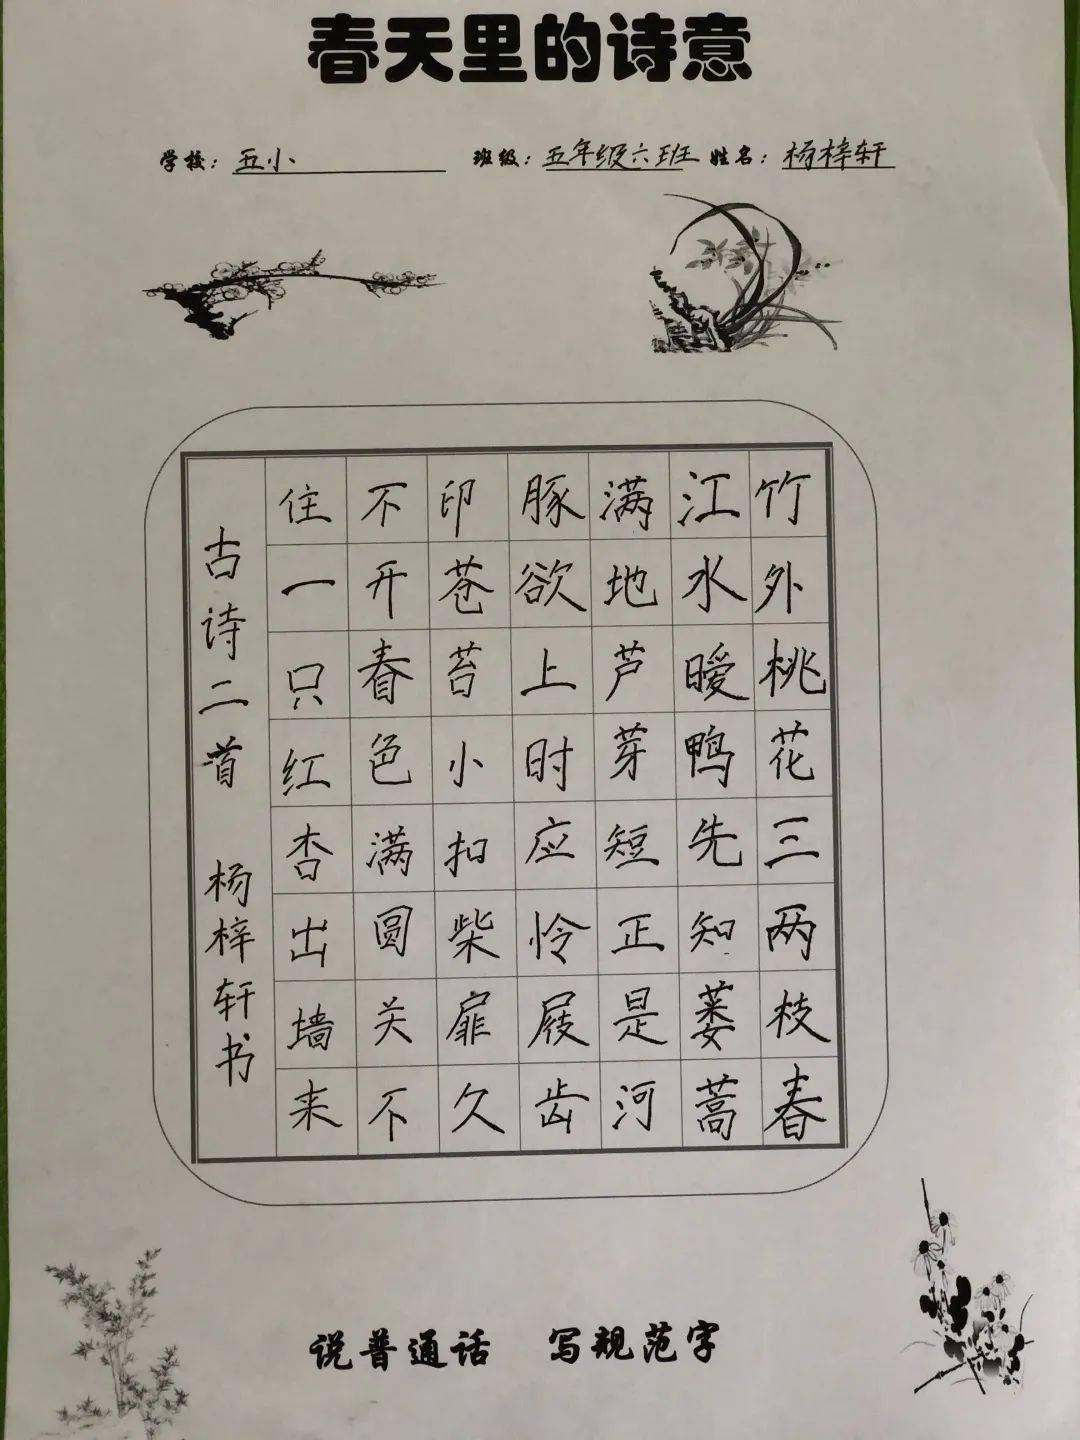 春天里的诗意
学校：五小 班级：五年级六班 姓名：杨梓轩
竹外桃花三两枝春
江水暖鸭先知蒌蒿
满地芦芽短正是河
豚欲上时应怜屐齿
印苍苔小扣柴扉久
不开春色满圆关不
住一只红杏出墙来
古诗二首 杨梓轩书
说普通话 写规范字